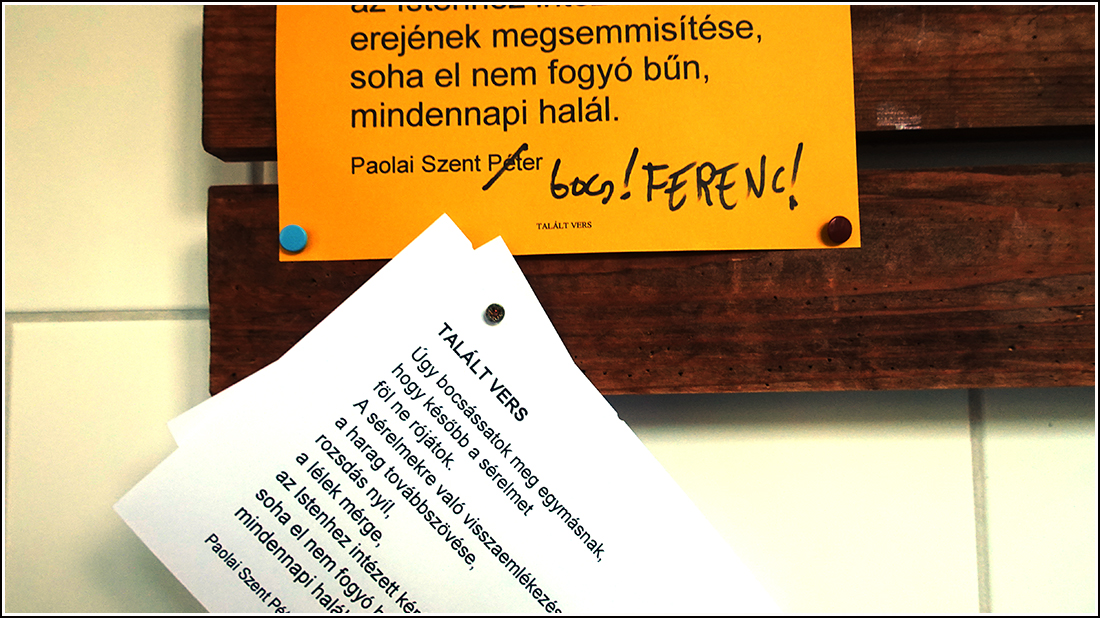 az Istenhez
erejének megsemmisítése,
soha el nem fogyó bűn,
mindennapi halál.
Paolai Szent Péter
bocs! FERENC!
TALÁLT VERS
TALÁLT VERS
Úgy bocsássatok meg egymásnak,
hogy később a sérelmet
föl ne rójátok.
A sérelmekre való visszaemlékezés
a harag továbbszövése,
rozsdás nyíl,
a lélek mérge,
az Istenhez intézett
soha el nem fogyó
mindennapi halál
Paolai Szent